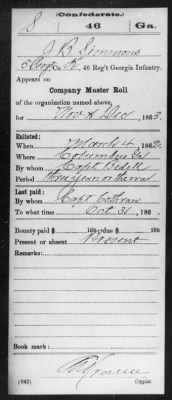 (Confederate.)
S 46 Ga.
J B Simmons
Co. K, 46 Reg't Georgia Infantry.
Appears on
Company Muster Roll
of the organization named above,
for Nov & Dec, 1863.
Enlisted:
When March 4, 1862.
Where Columbus Ga
By whom Capt Bedell
Period Three years or the war
Last paid:
By whom Capt
To what time Oct 31, 186 .
Bounty paid $ 100; due $ 100
Present or absent Present
Remarks:
Book mark:
(642) Copyist.